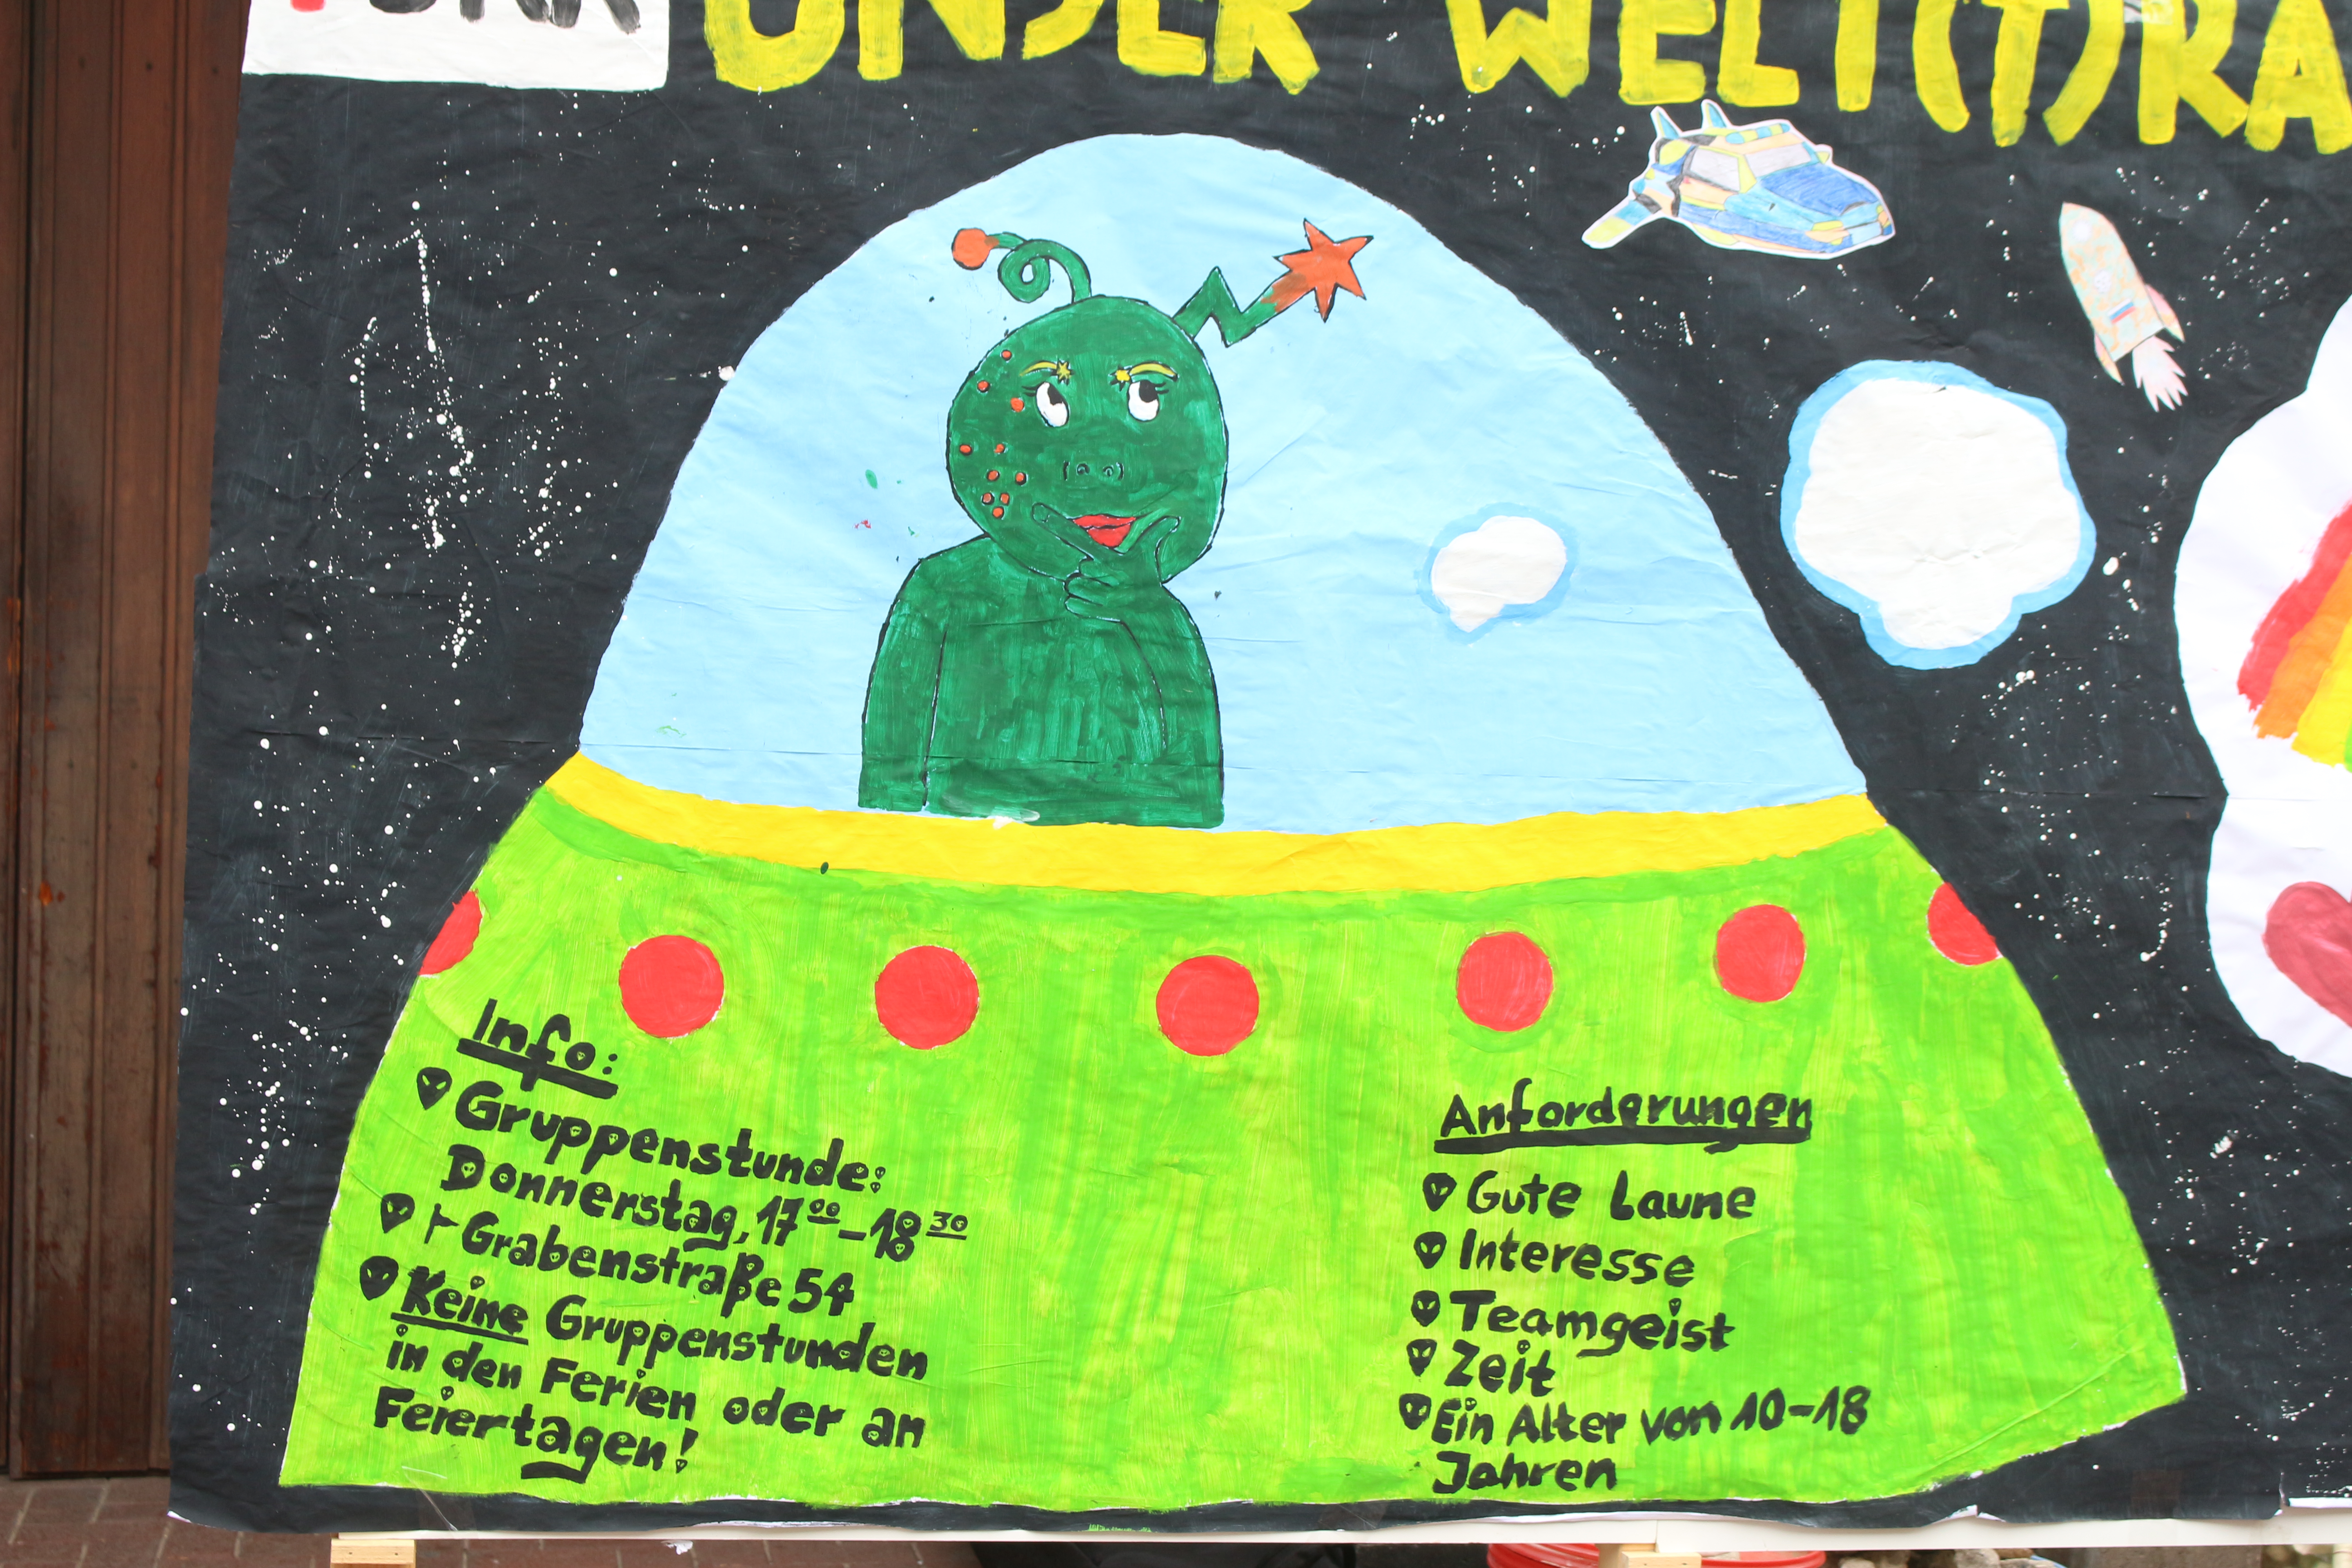 UNSER WELT(T)RA
Info:
Gruppenstunde:
Donnerstag, 17⁰⁰-18³⁰
Grabenstraße 54
Keine Gruppenstunden
in den Ferien oder an
Feiertagen!
Anforderungen
Gute Laune
Interesse
Teamgeist
Zeit
Ein Alter von 10-18
Jahren